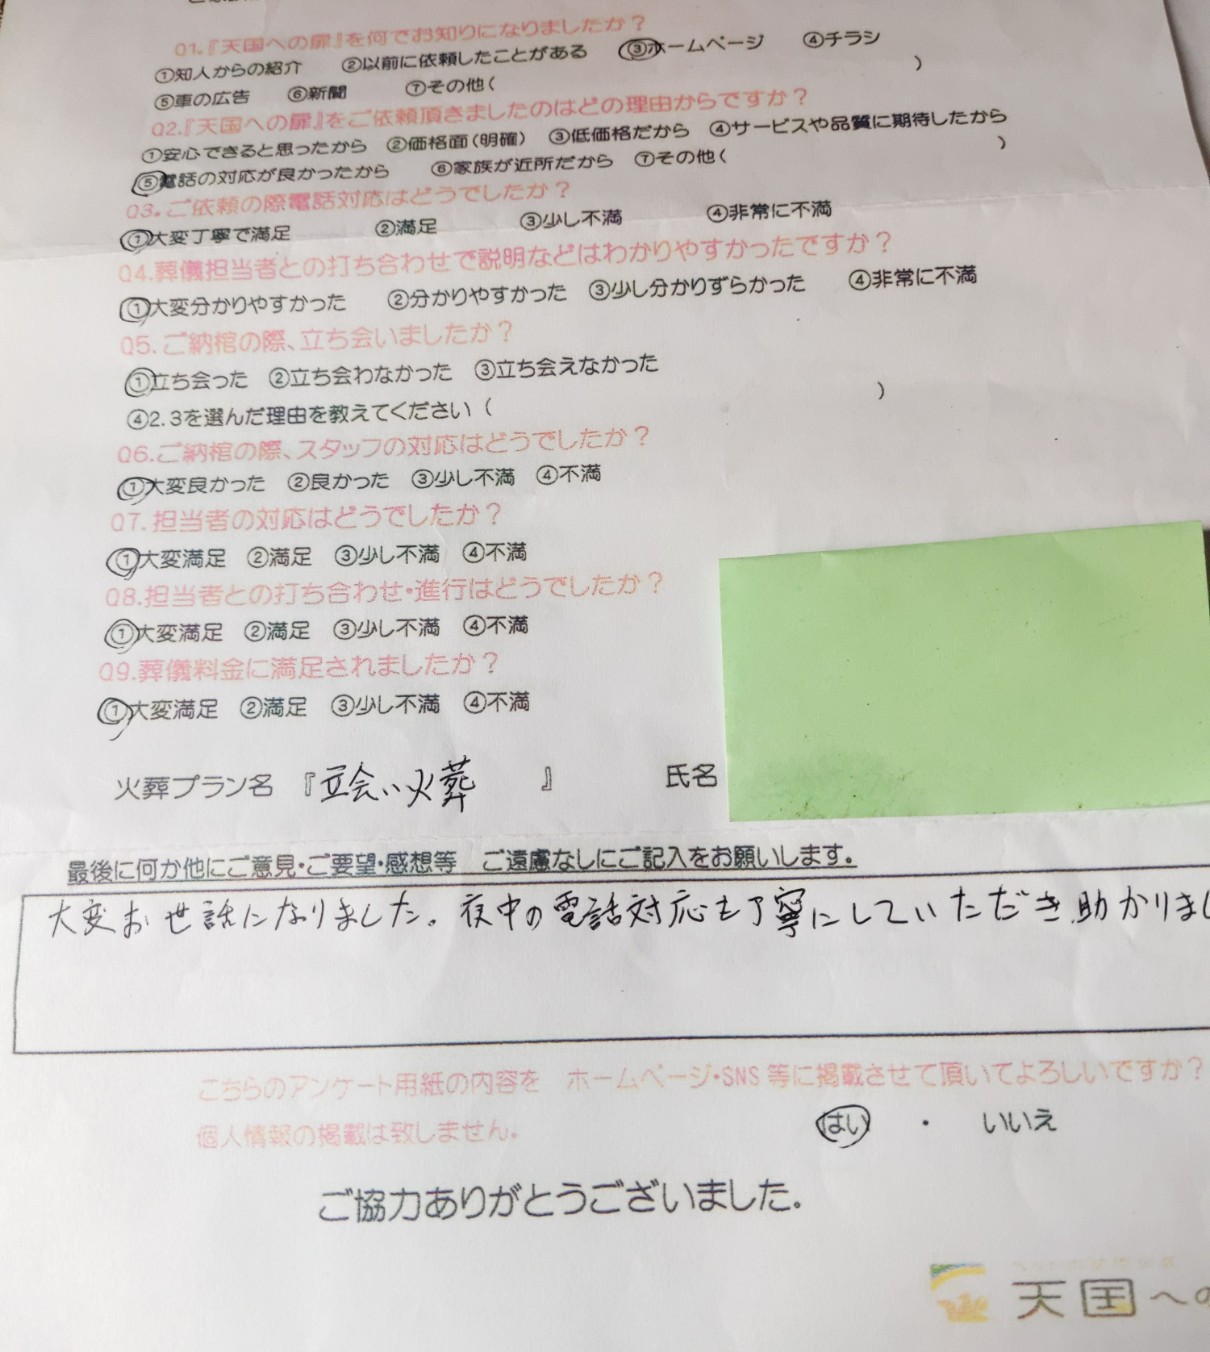 Q1.『天国への扉』を何でお知りになりましたか？
①知人からの紹介 ②以前に依頼したことがある ③ホームページ ④チラシ
⑤車の広告 ⑥新聞 ⑦その他( )
Q2.『天国への扉』をご依頼頂きましたのはどの理由からですか？
①安心できると思ったから ②価格面(明確) ③低価格だから ④サービスや品質に期待したから
⑤電話の対応が良かったから ⑥家族が近所だから ⑦その他( )
Q3.ご依頼の際電話対応はどうでしたか？
①大変丁寧で満足 ②満足 ③少し不満 ④非常に不満
Q4.葬儀担当者との打ち合わせで説明などはわかりやすかったですか？
①大変分かりやすかった ②分かりやすかった ③少し分かりずらかった ④非常に不満
Q5.ご納棺の際、立ち会いましたか？
①立ち会った ②立ち会わなかった ③立ち会えなかった
④2.3を選んだ理由を教えてください( )
Q6.ご納棺の際、スタッフの対応はどうでしたか？
①大変良かった ②良かった ③少し不満 ④不満
Q7.担当者の対応はどうでしたか？
①大変満足 ②満足 ③少し不満 ④不満
Q8.担当者との打ち合わせ・進行はどうでしたか？
①大変満足 ②満足 ③少し不満 ④不満
Q9.葬儀料金に満足されましたか？
①大変満足 ②満足 ③少し不満 ④不満
火葬プラン名 『立会い火葬 』 氏名
最後に何か他にご意見・ご要望・感想等 ご遠慮なしにご記入をお願いします。
大変お世話になりました。夜中の電話対応も丁寧にしていただき助かりまし
こちらのアンケート用紙の内容を ホームページ・SNS等に掲載させて頂いてよろしいですか？
個人情報の掲載は致しません。 はい ・ いいえ
ご協力ありがとうございました。
天国への